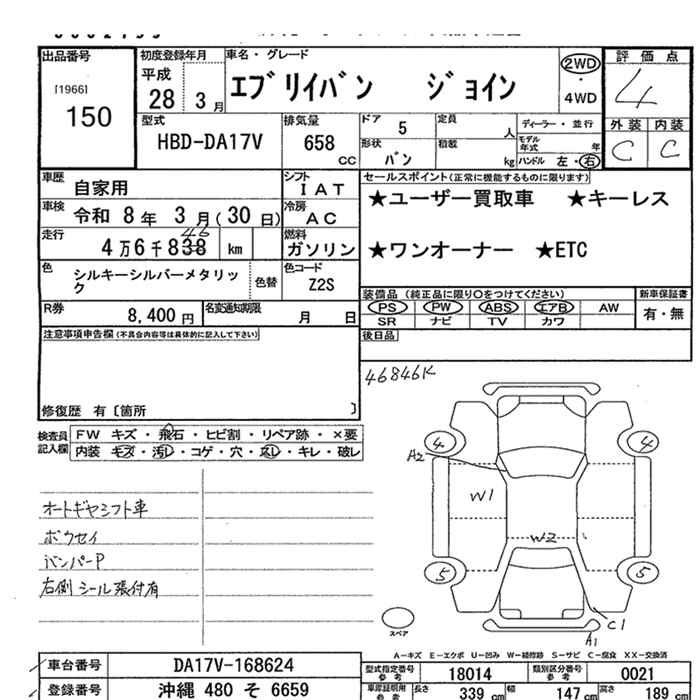 出品番号
[1966]
150
初度登録年月
平成
28 3 月
車名・グレード
エブリイバン ジョイン
2WD
・
4WD
評価点
4
外装 内装
C C
型式
HBD-DA17V
排気量
658
CC
ドア 5
定員 人
ディーラー・並行
モデル年式 年
形状 バン
積載 kg
ハンドル 左・右
車歴 自家用
シフト IAT
車検 令和 8 年 3 月(30 日)
冷房 AC
走行 4 万 6 千 838 46 km
燃料 ガソリン
色 シルキーシルバーメタリック
色替
色コード Z2S
R券 8,400 円
名変通知期限 月 日
セールスポイント(正常に機能するものに限ります)
★ユーザー買取車 ★キーレス
★ワンオーナー ★ETC
装備品(純正品に限り○をつけてください)
PS PW ABS エアB AW
SR ナビ TV カワ
新車保証書
有・無
後日品
注意事項申告欄(不具合内容等は具体的に記入して下さい)
修復歴 有〔箇所 〕
46846K
検査員記入欄
FW キズ・飛石・ヒビ割・リペア跡・×要
内装 キズ・汚レ・コゲ・穴・スレ・キレ・破レ
オートギヤシフト車
ボウセイ
バンパーP
右側シール張付有
4 4
A2
W1
W2
5 5
C1
A1
スペア
A-キズ E-エクボ U-凹み W-補修跡 S-サビ C-腐食 XX-交換済
車台番号 DA17V-168624
登録番号 沖縄 480 そ 6659
型式指定番号 参考 18014
類別区分番号 参考 0021
車庫証明用 参考 長さ 339 cm 幅 147 cm 高さ 189 cm